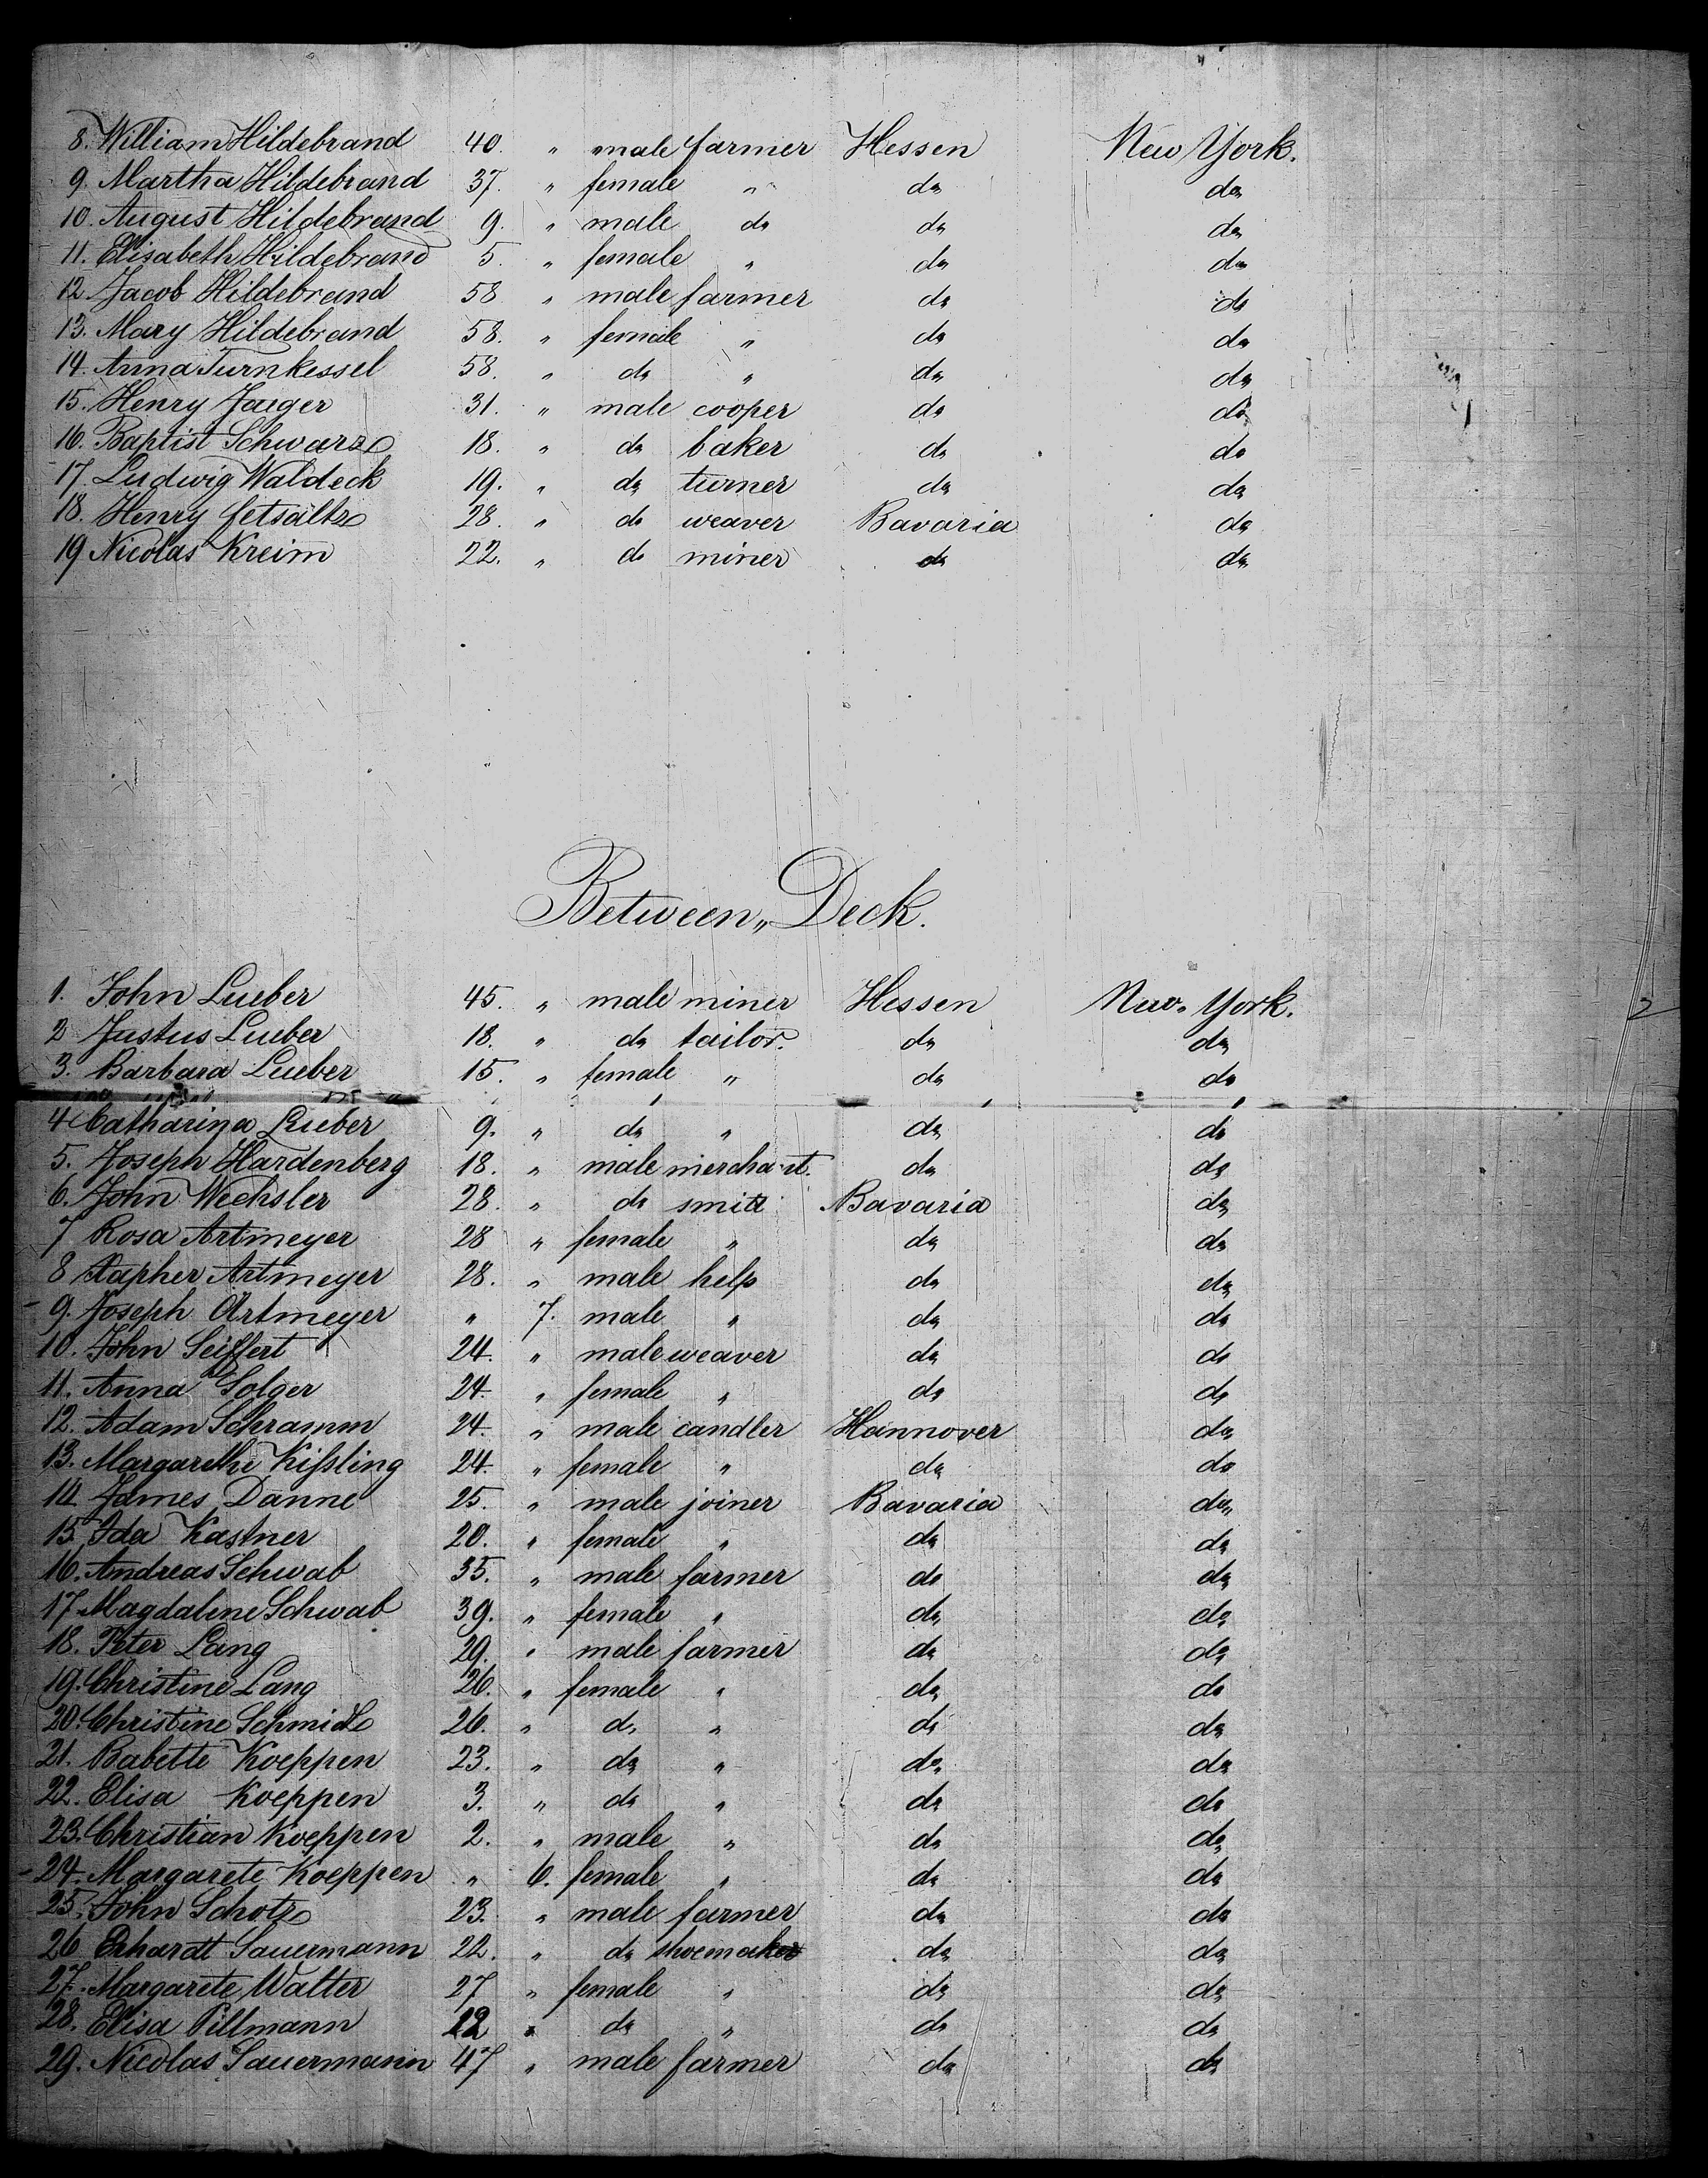 8. William Hildebrand 40. " male farmer Hessen New York.
9. Martha Hildebrand 37. " female " do do
10. August Hildebrand 9. " male do do do
11. Elisabeth Hildebrand 5. " female " do do
12. Jacob Hildebrand 58 " male farmer do do
13. Mary Hildebrand 58. " female " do do
14. Anna Turnkessel 58. " do " do do
15. Henry Jaeger 31. " male cooper do do
16. Baptist Schwarz 18. " do baker do do
17. Ludwig Waldeck 19. " do turner do do
18. Henry 28. " do weaver Bavaria do
19 Nicolas Kreim 22. " do miner do do
Between " Deck.
1. John Lueber 45. " male miner Hessen New York.
2 Justus Lueber 18. " do tailor. do do
3. Barbara Lueber 15. " female " do do
4 Catharina Lueber 9. " do " do do
5. Joseph Hardenberg 18. " male merchant. do do
6. John Wechsler 28. " do Bavaria do
7 Rosa Artmeyer 28 " female " do do
8 Artmeyer 28. " male help do do
9. Joseph Artmeyer " 7. male " do do
10. John Seiffert 24. " male weaver do do
11. Anna Solger 24. " female " do do
12. Adam Schramm 24. " male candler Hannover do
13. Margarethe Kißling 24. " female " do do
14 James Danne 25. " male joiner Bavaria do
15 Ida Kastner 20. " female " do do
16. Andreas Schwab 35. " male farmer do do
17 Magdaline Schwab 39. " female " do do
18. Peter Lang 29. " male farmer do do
19. Christine Lang 26. " female " do do
20. Christine Schmidt 26. " do " do do
21. Babette Koeppen 23. " do " do do
22. Elisa Koeppen 3. " do " do do
23. Christian Koeppen 2. " male " do do
24. Margarete Koeppen " 6. female " do do
25. John Schotz 23. " male farmer do do
26 Erhardt Sauermann 22. " do shoemaker do do
27. Margarete Walter 27 " female " do do
28. Elisa Pillmann " do " do do
29. Nicolas Sauermann 47 " male farmer do do